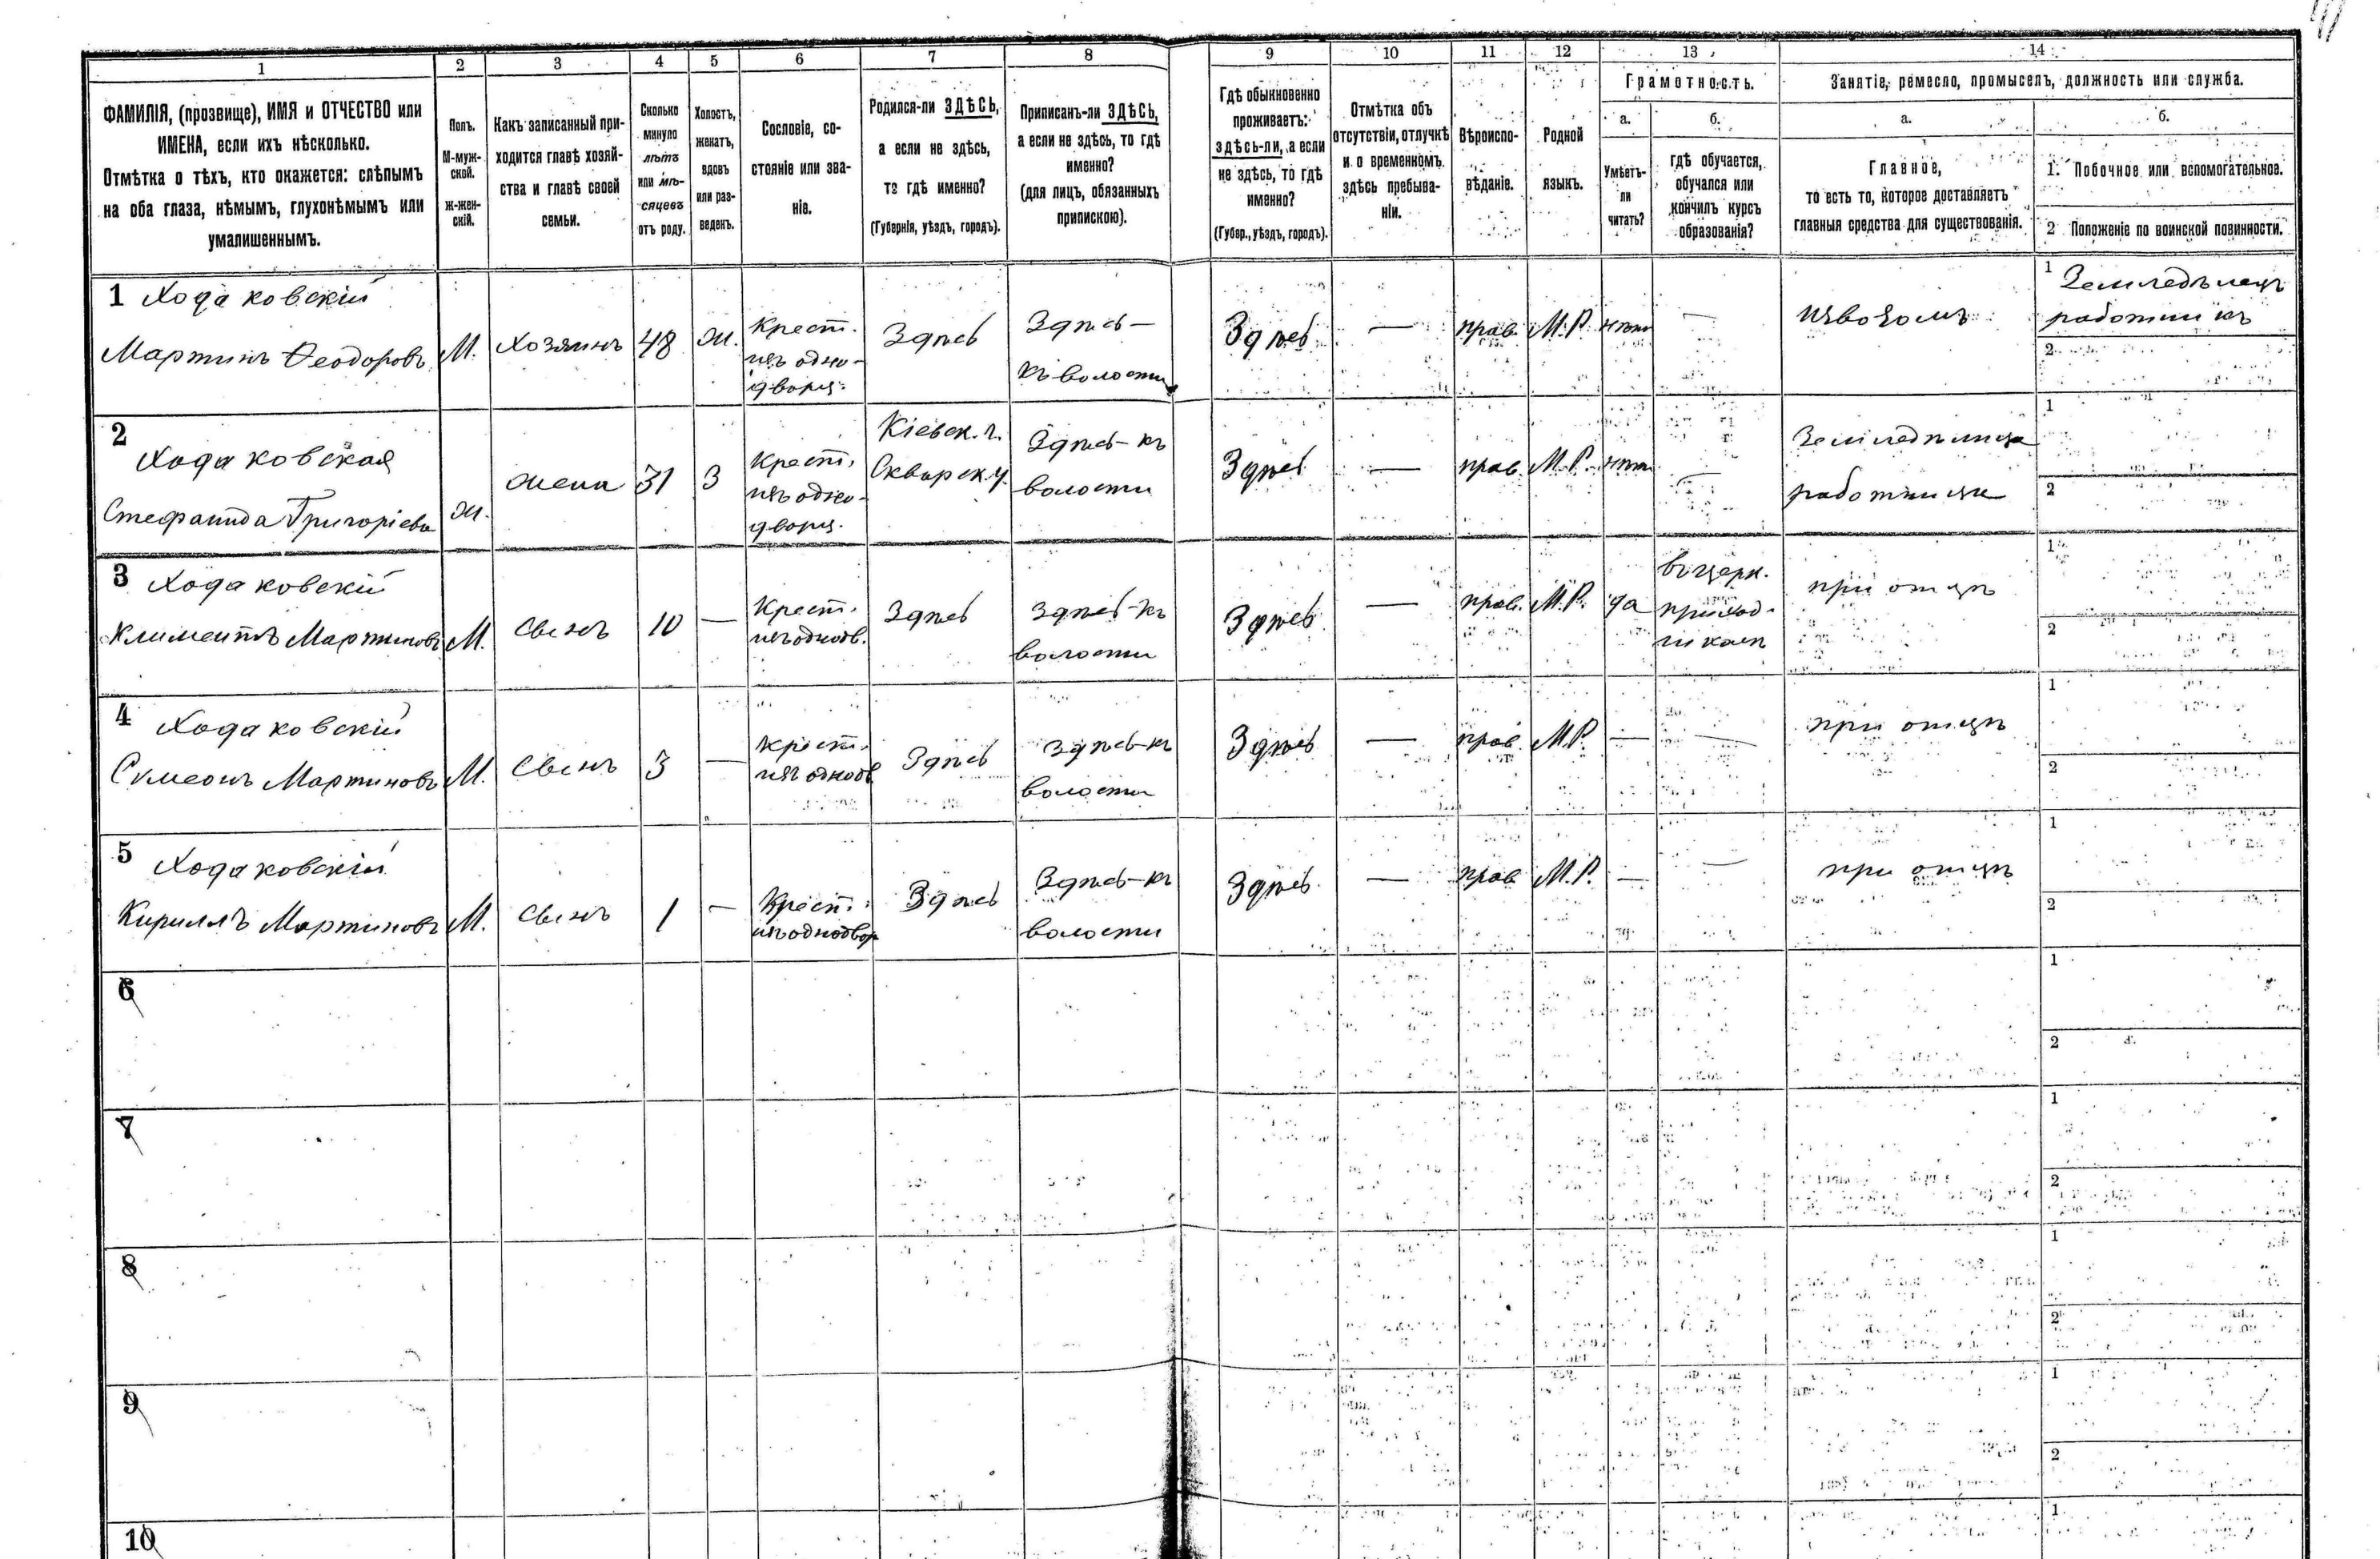 1 2 3 4 5 6 7 8 9 10 11 12 13 14
ФАМИЛІЯ, (прозвище), ИМЯ и ОТЧЕСТВО или
ИМЕНА, если ихъ нѣсколько.
Отмѣтка о тѣхъ, кто окажется: слѣпымъ
на оба глаза, нѣмымъ, глухонѣмымъ или
умалишеннымъ.
Полъ.
М-муж-
ской.
Ж-жен-
скій.
Какъ записанный при-
ходится главѣ хозяй-
ства и главѣ своей
семьи.
Сколько
минуло
лѣтъ
или мѣ-
сяцевъ
отъ роду.
Холостъ,
женатъ,
вдовъ
или раз-
веденъ.
Сословіе, со-
стояніе или зва-
ніе.
Родился-ли ЗДѢСЬ,
а если не здѣсь,
то гдѣ именно?
(Губернія, уѣздъ, городъ).
Приписанъ-ли ЗДѢСЬ,
а если не здѣсь, то гдѣ
именно?
(для лицъ, обязанныхъ
припискою).
Гдѣ обыкновенно
проживаетъ:
здѣсь-ли, а если
не здѣсь, то гдѣ
именно?
(Губер., уѣздъ, городъ).
Отмѣтка объ
отсутствіи, отлучкѣ
и о временномъ
здѣсь пребыва-
ніи.
Вѣроиспо-
вѣданіе.
Родной
языкъ.
Грамотность.
а.
Умѣетъ-
ли
читать?
б.
гдѣ обучается,
обучался или
кончилъ курсъ
образованія?
Занятіе, ремесло, промыселъ, должность или служба.
а.
Главное,
то есть то, которое доставляетъ
главныя средства для существованія.
б.
1. Побочное или вспомогательное.
2 Положеніе по воинской повинности.
1 Ходаковскій
Мартинъ Ѳеодоровъ
М.
Хозяинъ
48
ж.
Крест.
изъ одно-
дворц.
Здѣсь
Здѣсь —
къ волости
Здѣсь
—
прав.
М.Р.
нѣтъ
—
извозомъ
1 Земледѣлецъ
работникъ
2
2
Ходаковская
Стефанида Григоріева
ж.
жена
31
З
Крест.
изъ одно-
дворц.
Кіевск. г.
Сквирск. у.
Здѣсь - къ
волости
Здѣсь
—
прав.
М.Р.
нѣтъ
—
Земледѣлица
работница
1
2
3 Ходаковскій
Климентъ Мартиновъ
М.
Сынъ
10
—
Крест.
изъ однодв.
Здѣсь
Здѣсь - къ
волости
Здѣсь
—
прав.
М.Р.
да
въ церк.
приход.
школѣ
при отцѣ
1
2
4 Ходаковскій
Симеонъ Мартиновъ
М.
Сынъ
3
—
Крест.
изъ однодв
Здѣсь
Здѣсь - къ
волости
Здѣсь
—
прав.
М.Р.
—
—
при отцѣ
1
2
5 Ходаковскій
Кириллъ Мартиновъ
М.
Сынъ
1
—
Крест.
изъ однодвор
Здѣсь
Здѣсь - къ
волости
Здѣсь
—
прав
М.Р.
—
—
при отцѣ
1
2
6
1
2
7
1
2
8
1
2
9
1
2
10
1